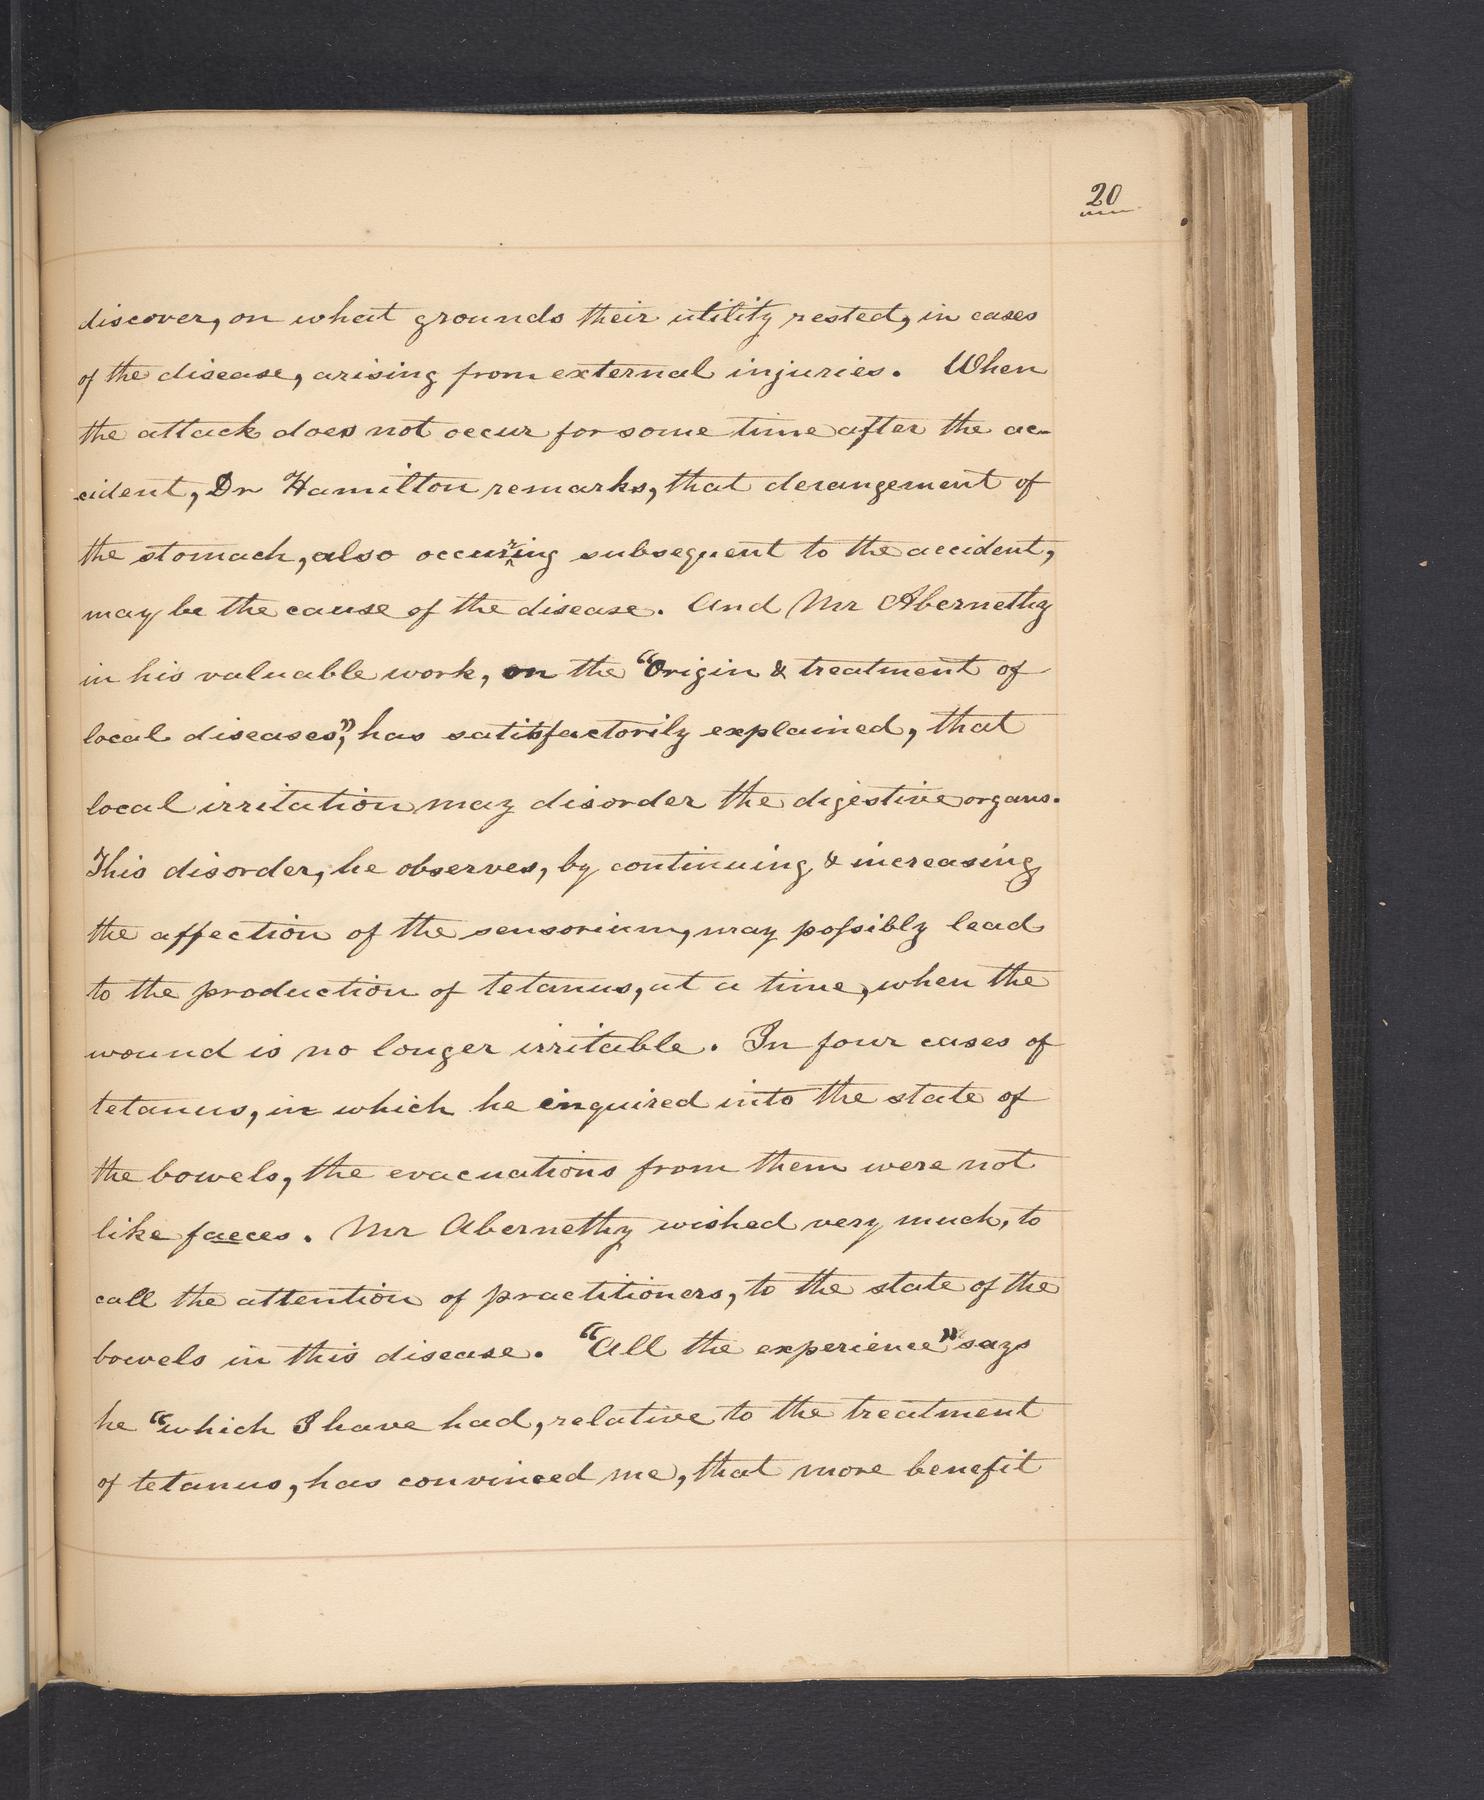 20
discover, on what grounds their utility rested, in cases
of the disease, arising from external injuries. When
the attack does not occur for some time after the ac-
cident, Dr Hamilton remarks, that derangement of
the stomach, also occurring subsequent to the accident,
may be the cause of the disease. And Mr Abernethy
in his valuable work, on the "Origin & treatment of
local diseases", has satisfactorily explained, that
local irritation may disorder the digestive organs.
This disorder, he observes, by continuing & increasing
the affection of the sensorium, may poſsibly lead
to the production of tetanus, at a time, when the
wound is no longer irritable. In four cases of
tetanus, in which he inquired into the state of
the bowels, the evacuations from them were not
like faeces. Mr Abernethy wished very much, to
call the attention of practitioners, to the state of the
bowels in this disease. "All the experience" says
he "which I have had, relative to the treatment
of tetanus, has convinced me, that more benefit